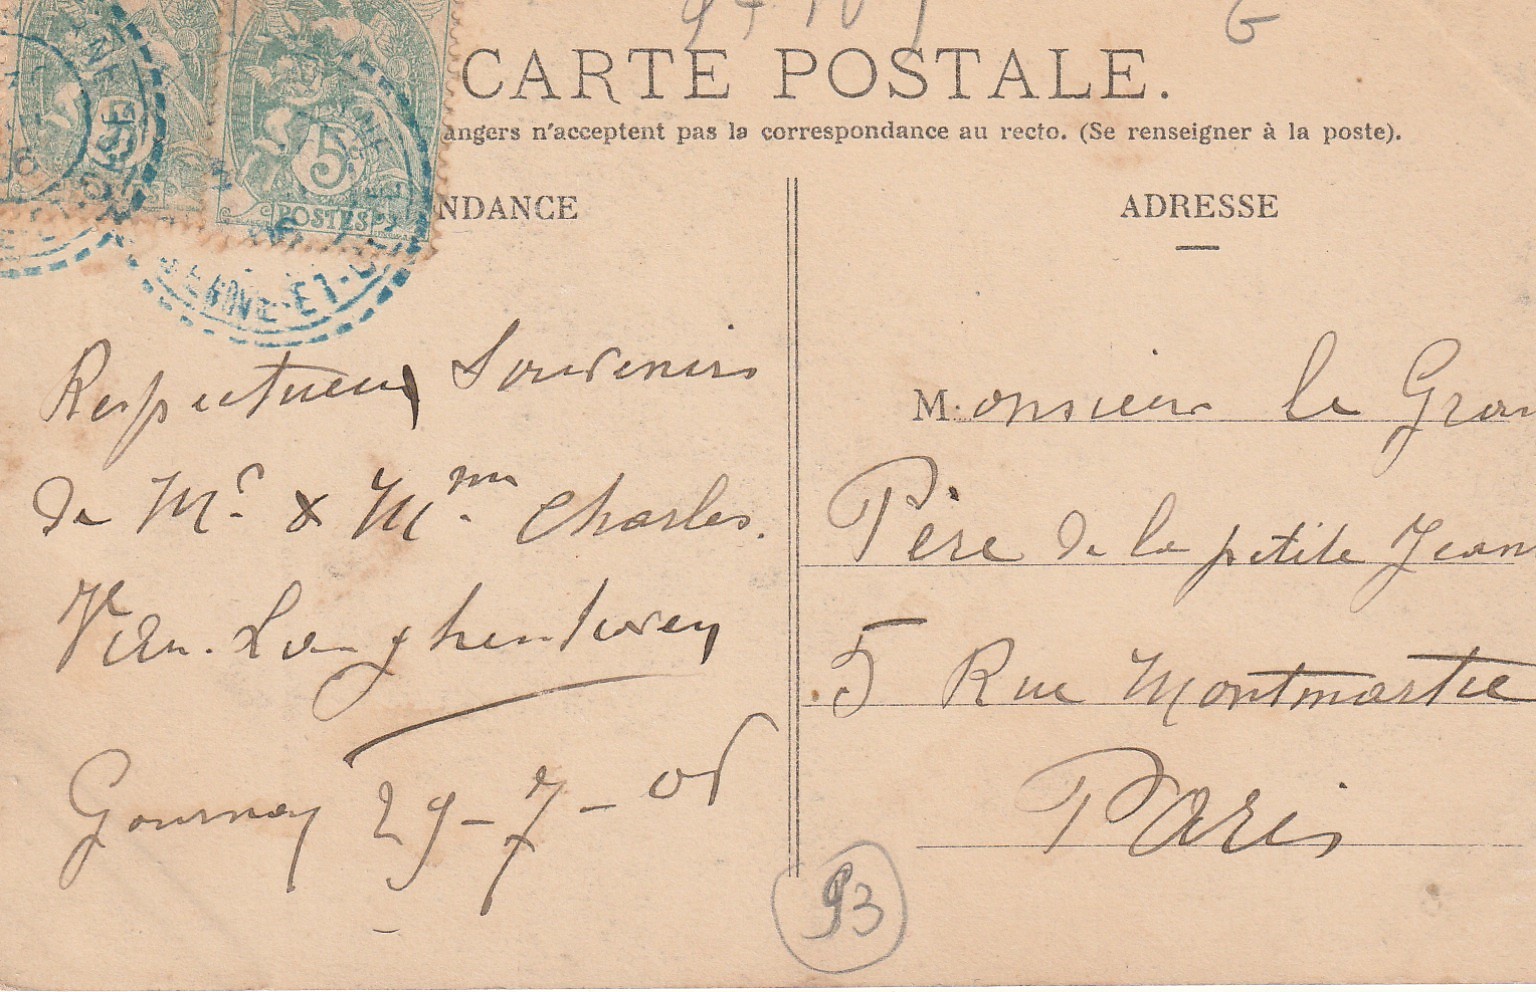 G
CARTE POSTALE.
angers n'acceptent pas la correspondance au recto. (Se renseigner à la poste).
NDANCE
5
POSTES
Respectueux Souvenirs
de Mr. & Mme. Charles.
Van. Langhenhoven
Gournay 29-7-05
ADRESSE
Monsieur le Gran
Père de la petite Jean
5 Rue Montmartre
Paris
93